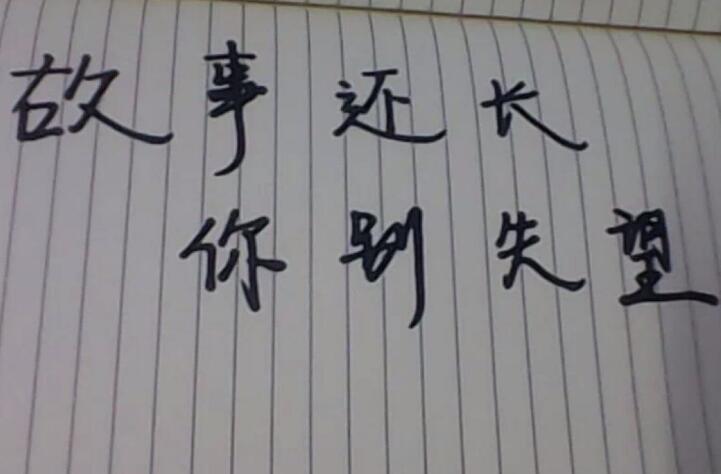 故事还长
你别失望